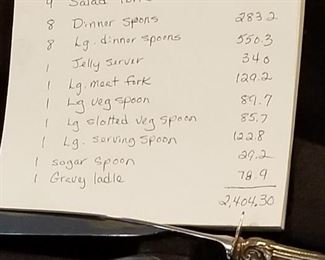 Salad
8 Dinner Spons 283.2
8 Lg. dinner spoons 550.3
1 Jelly Server 340
1 Lg. meat fork 129.2
1 Lg veg spoon 89.7
1 Lg slotted veg spoon 85.7
1 Lg. serving spoon 122.8
1 sagar spoon 29.2
1 Gravey ladle 78.9
2,404.30